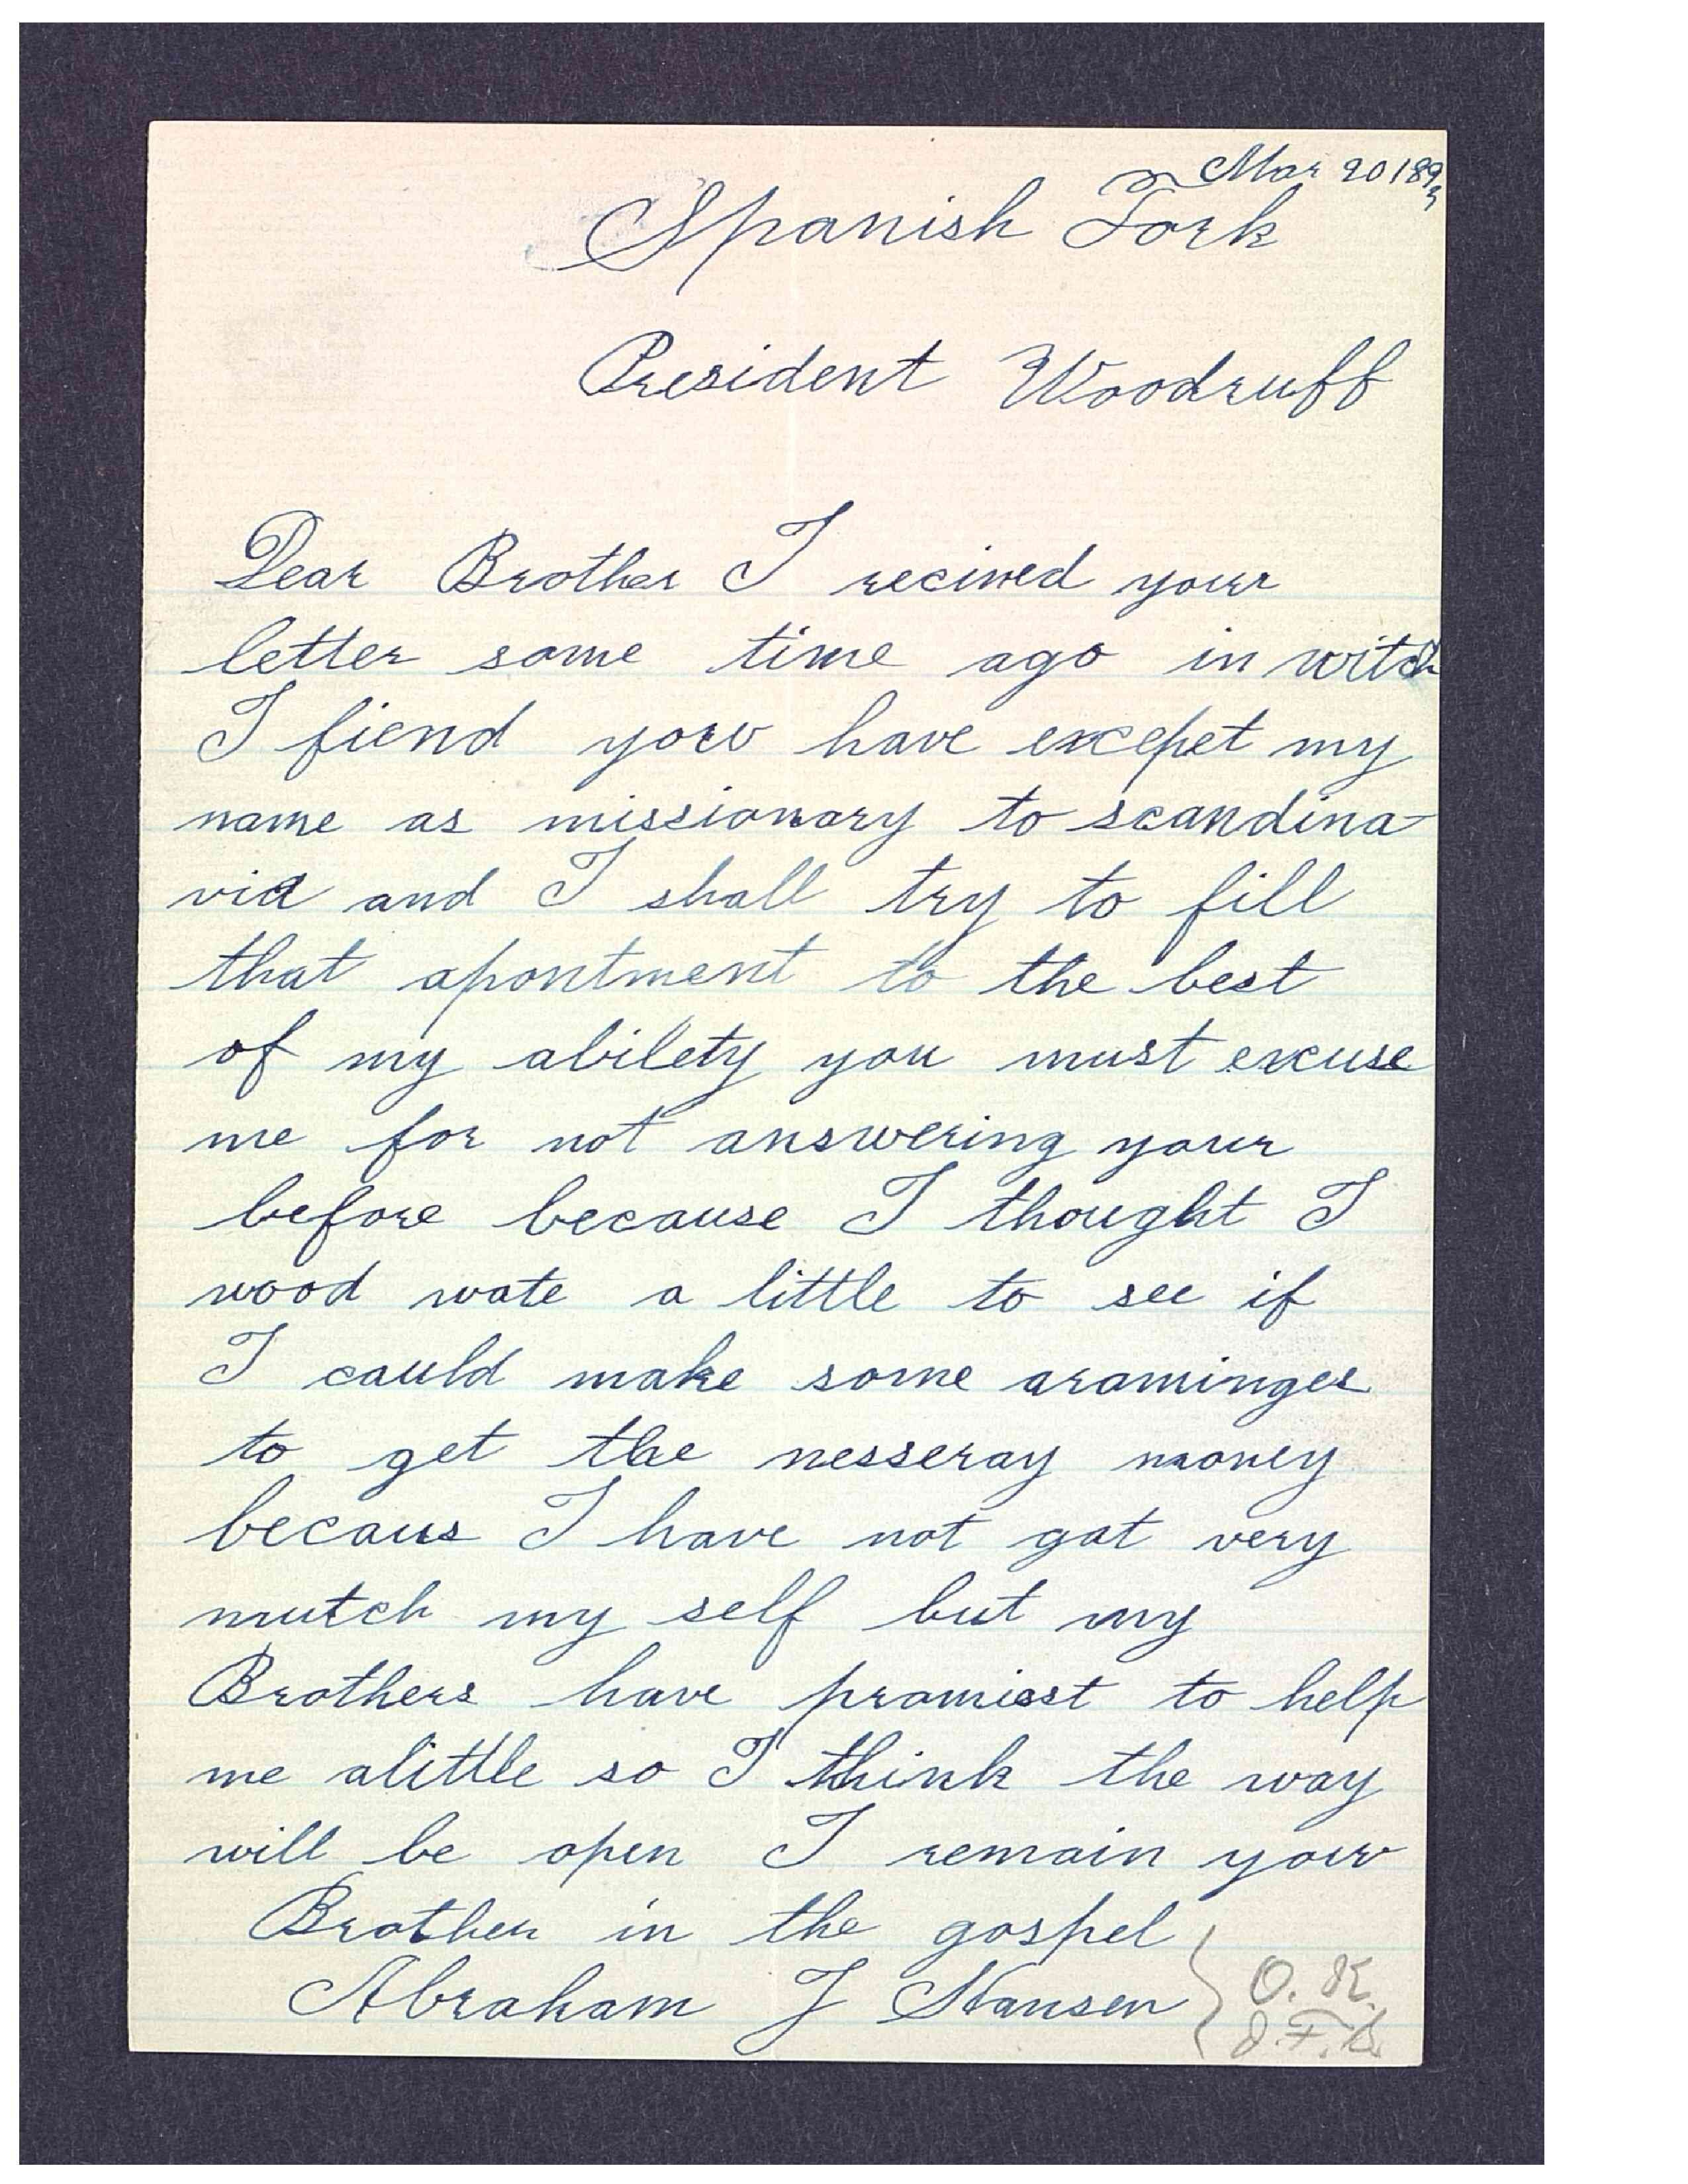 Mar 20 1893
Spanish Fork
President Woodruff
Dear Brother I recived your
letter some time ago in witch
I fiend yow have excepet my
name as missionary to scandina
via and I shall try to fill
that apontment to the best
of my abilety you must excuse
me for not answering your
before because I thought I
wood wate a little to see if
I could make some araminges
to get the nesseray money
becaus I have not got very
mutch my self but my
Brothers have promisst to help
me alittle so I think the way
will be open I remain your
Brother in the gospel
Abraham J Hansen
O. K.
J. F. S.